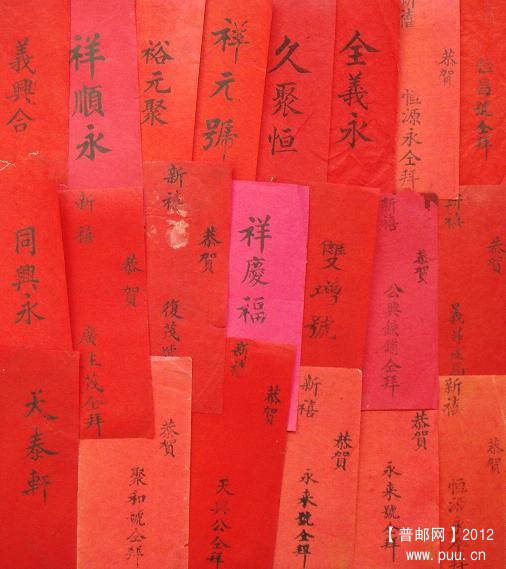 義興合
祥順永
裕元聚
祥元號
久聚恒
全義永
新禧
恭賀
恒源永仝拜
恒昌號仝拜
同興永
新禧
恭賀
仝拜
新禧
恭賀
復茂號
祥慶福
雙增號
新禧
恭賀
仝拜
新禧
恭賀
天泰軒
恭賀
聚和號仝拜
新禧
恭賀
天興公仝拜
新禧
恭賀
永来號仝拜
恭賀
永来號仝拜
新禧
恭賀
恒源
【普邮网】2012
www.puu.cn